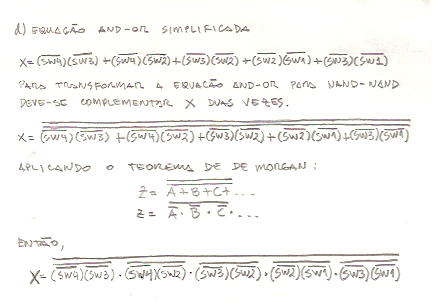 d) EQUAÇÃO AND-OR SIMPLIFICADA
X= (S̅W̅4̅)(S̅W̅3̅) + (S̅W̅4̅)(S̅W̅2̅) + (S̅W̅3̅)(S̅W̅2̅) + (S̅W̅2̅)(S̅W̅1̅) + (S̅W̅3̅)(S̅W̅1̅)
PARA TRANSFORMAR A EQUAÇÃO AND-OR PARA NAND-NAND
DEVE-SE COMPLEMENTAR X DUAS VEZES.
X= (SW4)(SW3) + (SW4)(SW2) + (SW3)(SW2) + (SW2)(SW1) + (SW3)(SW1)
APLICANDO O TEOREMA DE DE MORGAN:
Z= A+B+C+...
Z= A̅·B̅·C̅....
ENTÃO,
X= (SW4)(SW3)·(SW4)(SW2)·(SW3)(SW2)·(SW2)(SW1)·(SW3)(SW1)